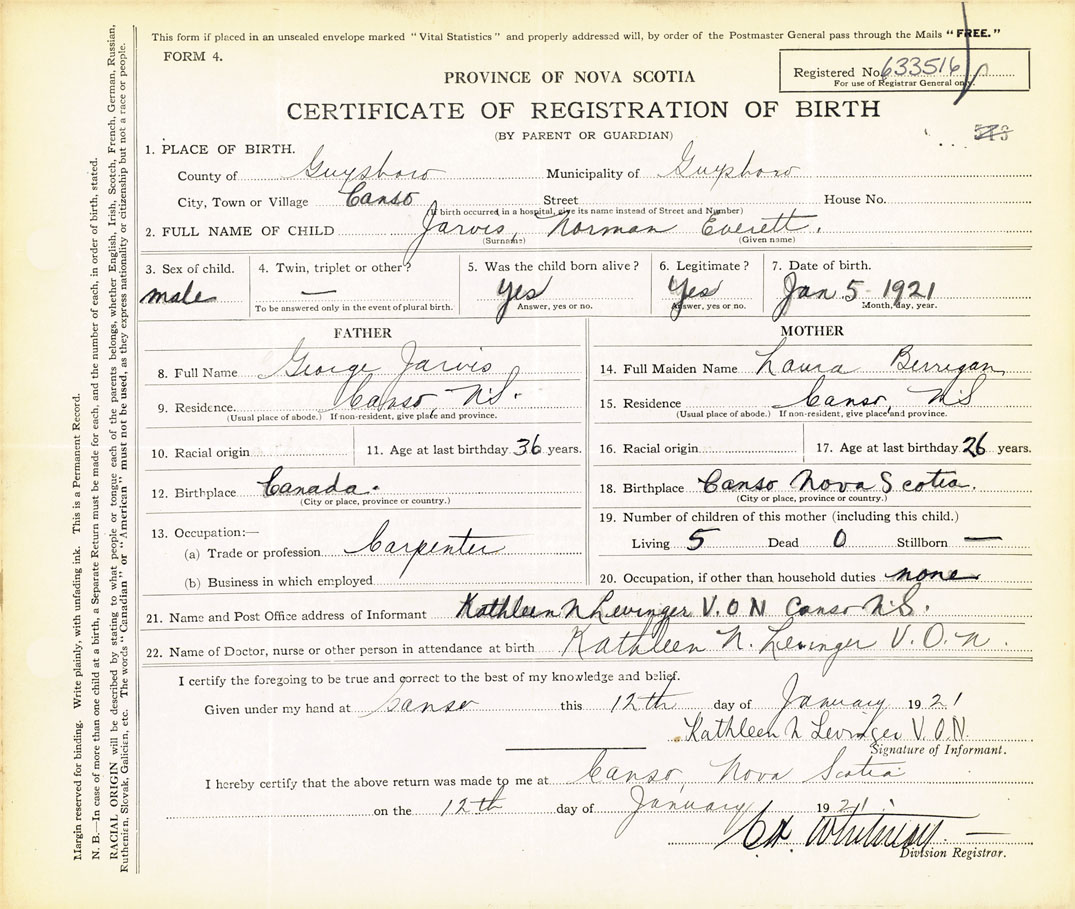 This form if placed in an unsealed envelope marked "Vital Statistics" and properly addressed will, by order of the Postmaster General pass through the Mails "FREE."
FORM 4.
Registered No. 633516
For use of Registrar General only.
PROVINCE OF NOVA SCOTIA
CERTIFICATE OF REGISTRATION OF BIRTH
(BY PARENT OR GUARDIAN)
1. PLACE OF BIRTH.
County of Guysboro Municipality of Guysboro
City, Town or Village Canso Street House No.
(If birth occurred in a hospital, give its name instead of Street and Number)
2. FULL NAME OF CHILD Jarvis, Norman Everett.
(Surname) (Given name)
3. Sex of child. 4. Twin, triplet or other? 5. Was the child born alive? 6. Legitimate? 7. Date of birth.
male — Yes Yes Jan 5 1921
To be answered only in the event of plural birth. Answer, yes or no. Answer, yes or no. Month, day, year.
FATHER
8. Full Name George Jarvis
9. Residence. Canso, N.S.
(Usual place of abode.) If non-resident, give place and province.
10. Racial origin 11. Age at last birthday 36 years.
12. Birthplace Canada.
(City or place, province or country.)
13. Occupation:—
(a) Trade or profession Carpenter
(b) Business in which employed
MOTHER
14. Full Maiden Name Laura Berrigan
15. Residence Canso, NS
(Usual place of abode.) If non-resident, give place and province.
16. Racial origin 17. Age at last birthday 26 years.
18. Birthplace Canso Nova Scotia.
(City or place, province or country.)
19. Number of children of this mother (including this child.)
Living 5 Dead 0 Stillborn —
20. Occupation, if other than household duties none
21. Name and Post Office address of Informant Kathleen N Levinger V.O.N Canso N.S.
22. Name of Doctor, nurse or other person in attendance at birth Kathleen N. Levinger V.O.N.
I certify the foregoing to be true and correct to the best of my knowledge and belief.
Given under my hand at Canso this 12th day of January 1921
Kathleen N Levinger V.O.N.
Signature of Informant.
I hereby certify that the above return was made to me at Canso, Nova Scotia
on the 12th day of January 1921.
Whitman
Division Registrar.
Margin reserved for binding. Write plainly, with unfading ink. This is a Permanent Record.
N. B.—In case of more than one child at a birth, a Separate Return must be made for each, and the number of each, in order of birth, stated.
RACIAL ORIGIN will be described by stating to what people or tongue each of the parents belongs, whether English, Irish, Scotch, French, German, Russian,
Ruthenian, Slovak, Galician, etc. The words "Canadian" or "American" must not be used, as they express nationality or citizenship but not a race or people.